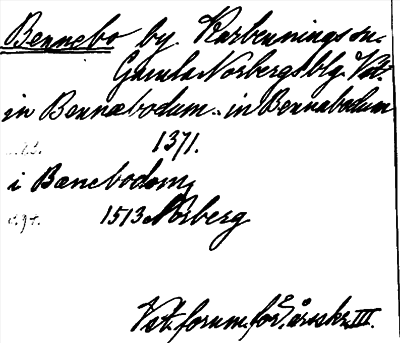 Bennebo by Karbennings sn.
Gamla Norbergs blg. Vstm.
in Bennæbodum.. in Bennabodum
1371.
i Bænebodom
1513 Norberg
Vstm. fornm.för:s årsskr. III.